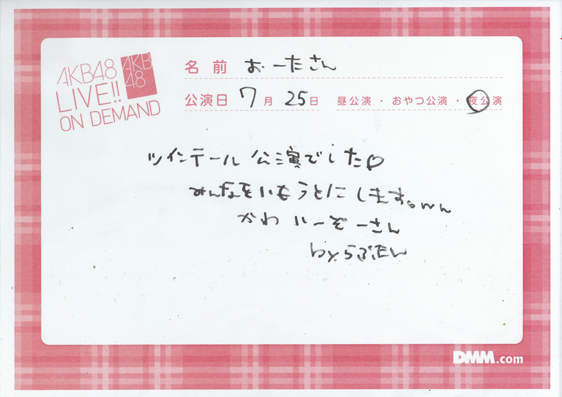 AKB48
LIVE!!
ON DEMAND
AKB
48
名前 おーたさん
公演日 7月 25日 昼公演・おやつ公演・夜公演
ツインテール公演でした♡
みんなをいもうとにします。ww
かわいーぞーさん
by らぶたん
DMM.com